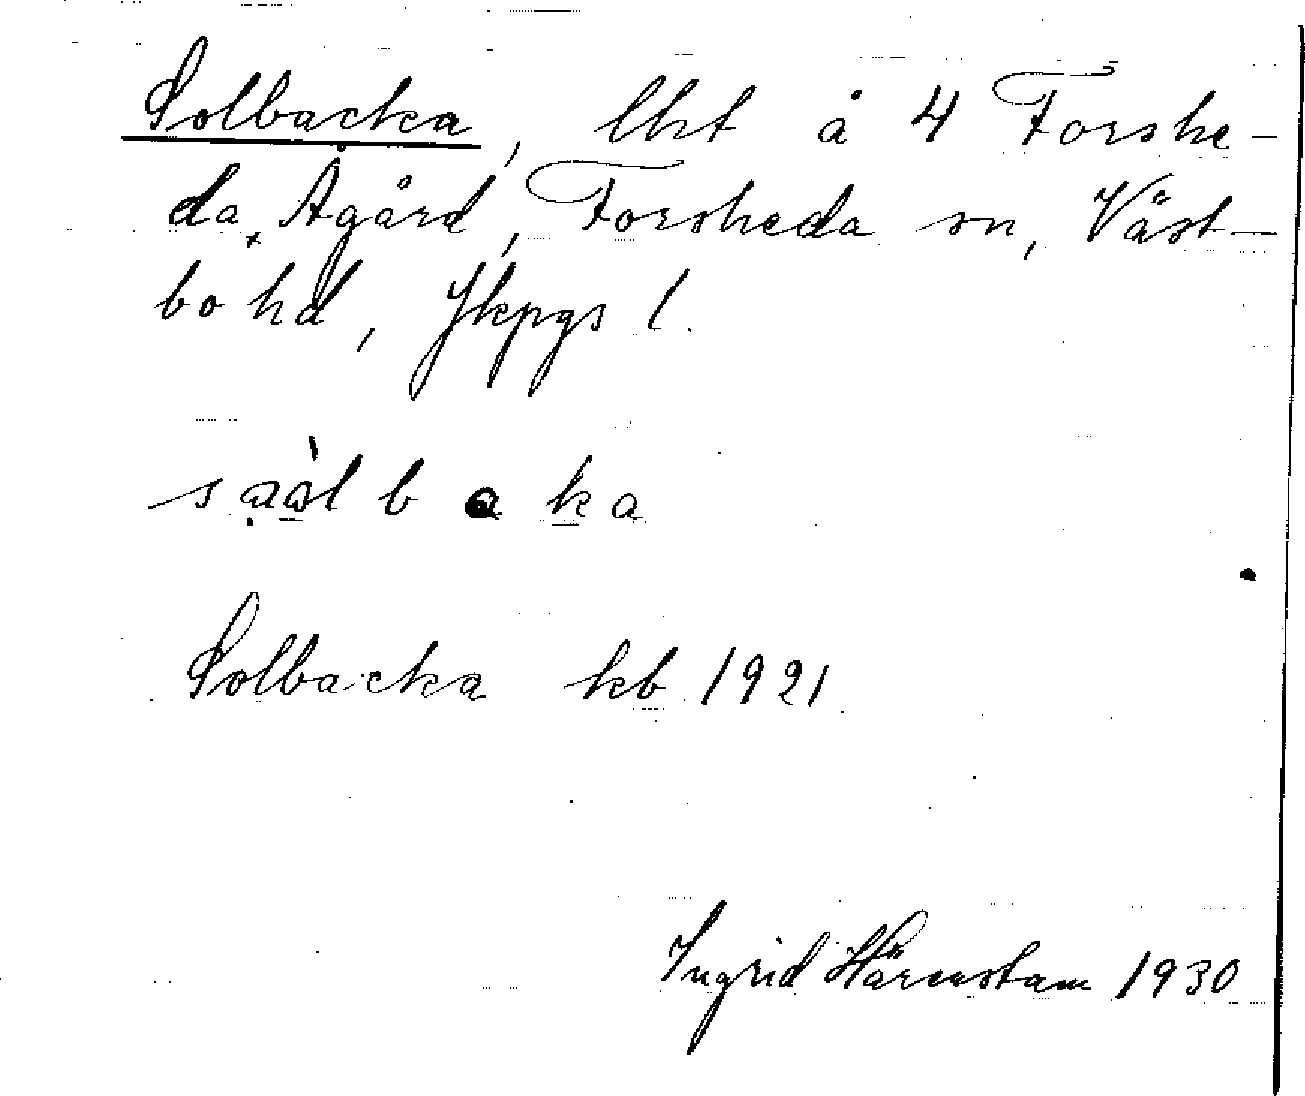 Solbacka, lht å 4 Forshe-
da, Ågård, Forsheda sn, Väst-
bo hd, Jkpgs l.
Solbacka kb 1921
Ingrid Härenstam 1930